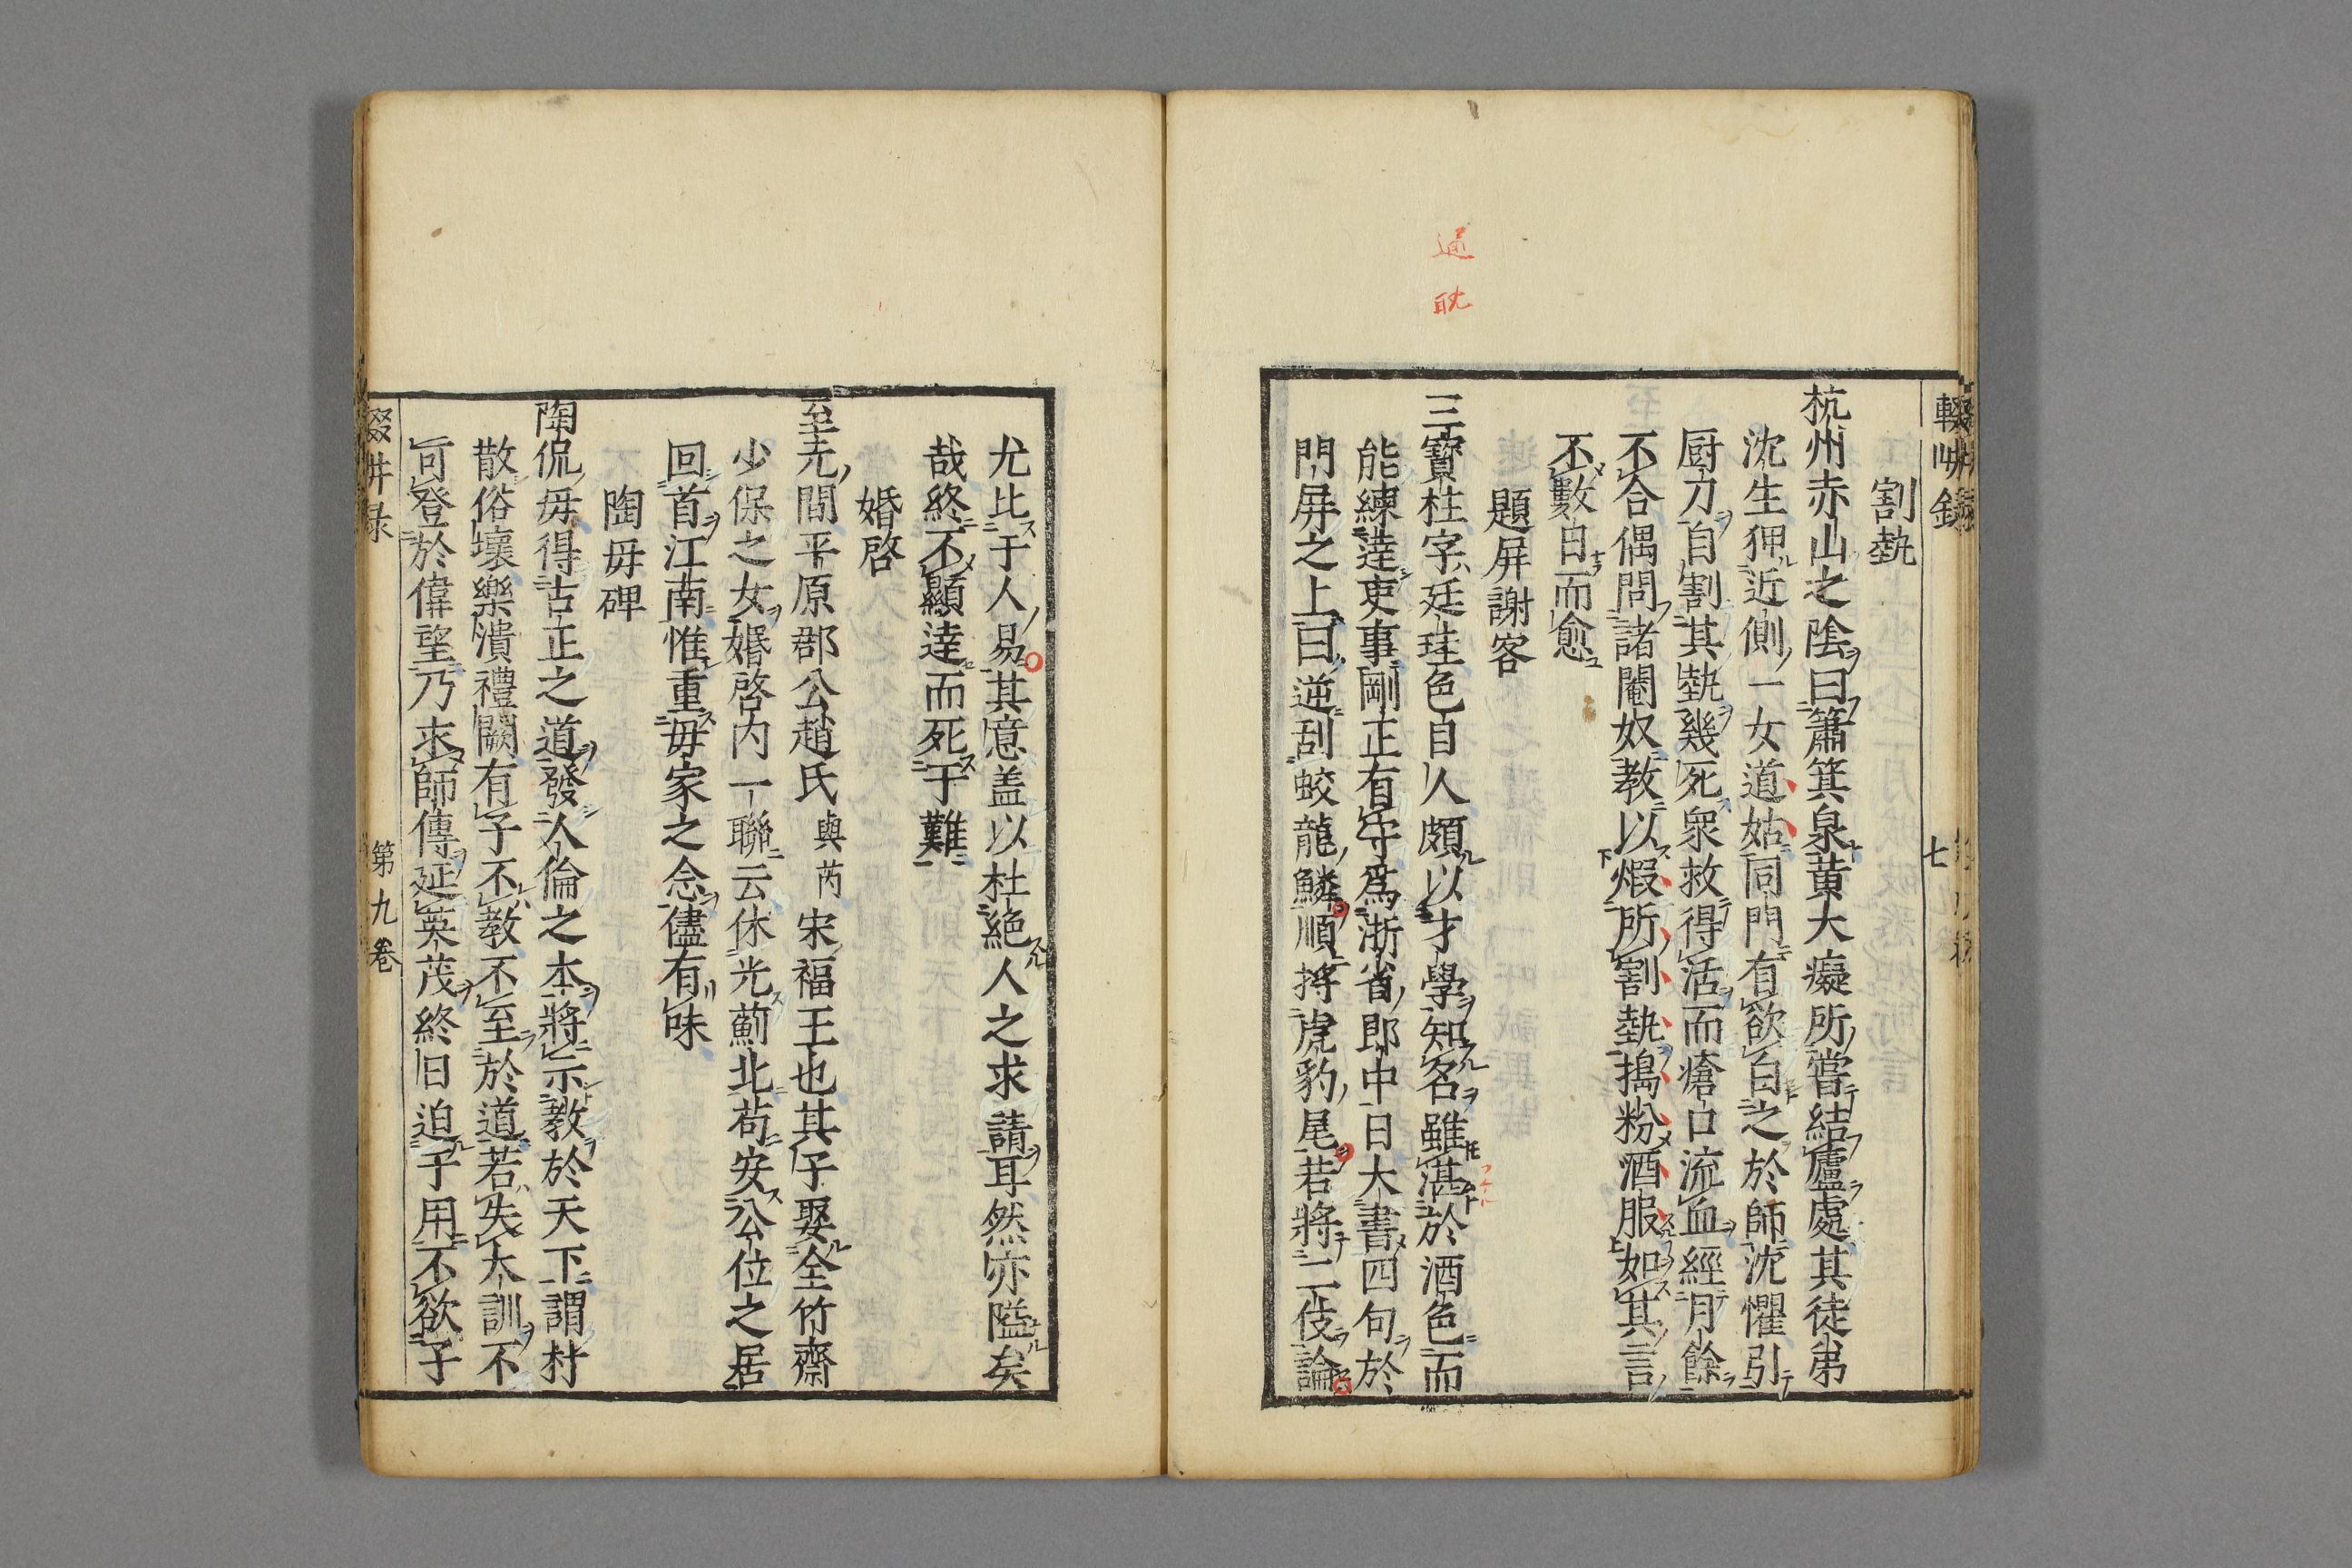 輟畊錄
七
割勢
杭州赤山之陰曰簫箕泉黃大癡所嘗結廬處其徒弟
沈生狎近側一女道姑同門有欲白之於師沈懼引
厨刀自割其勢幾死衆救得活而瘡口流血經月餘
不合偶問諸閹奴教以煆所割勢搗粉酒服如其言
不數日而愈
題屏謝客
過
耽
三寶柱字廷珪色目人頗以才學知名雖湛於酒色而
能練達吏事剛正有守爲浙省郎中日大書四句於
門屏之上曰逆刮蛟龍鱗順捋虎豹尾若將二伎論
尤比于人易其意盖以杜絶人之求請耳然亦隘矣
哉終不顯達而死于難
婚啓
至元間平原郡公趙氏與芮宋福王也其子娶全竹齋
少保之女婚啓内一聯云休光薊北苟安公位之居
回首江南惟重毋家之念儘有味
陶毋碑
陶侃毋得古正之道發人倫之本將示教於天下謂村
散俗壞樂潰禮闕有子不教不至於道若失大訓不
可登於偉望乃求師傳延英茂終旧迫于用不欲子
第九卷